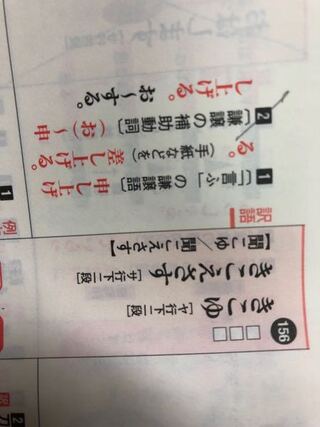 156
きこゆ［ヤ行下二段］
きこえさす［サ行下二段］
【聞こゆ／聞こえさす】
訳語
1 〔「言ふ」の謙譲語〕申し上げ
る。（手紙などを）差し上げる。
2 〔謙譲の補助動詞〕（お）〜申
し上げる。お〜する。
例
1
2
訳